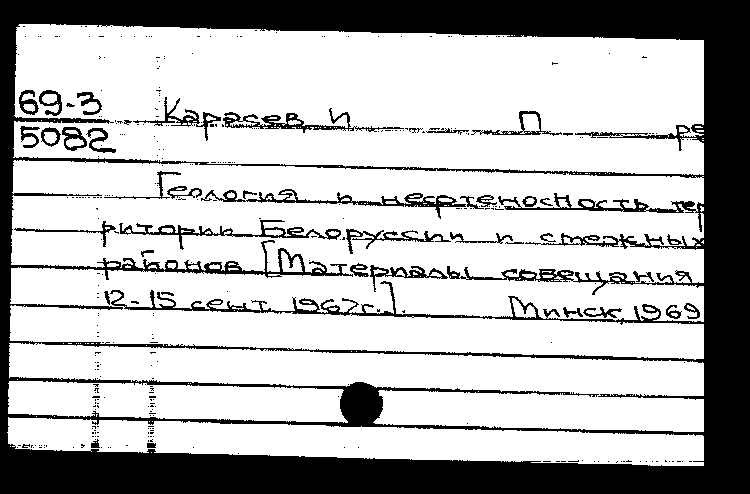 69-3 Карасев, И П ре
5082
Геология и нефтеносность тер
ритории Белоруссии и смежных
районов [Материалы совещания,
12-15 сент. 1967г.]. Минск, 1969